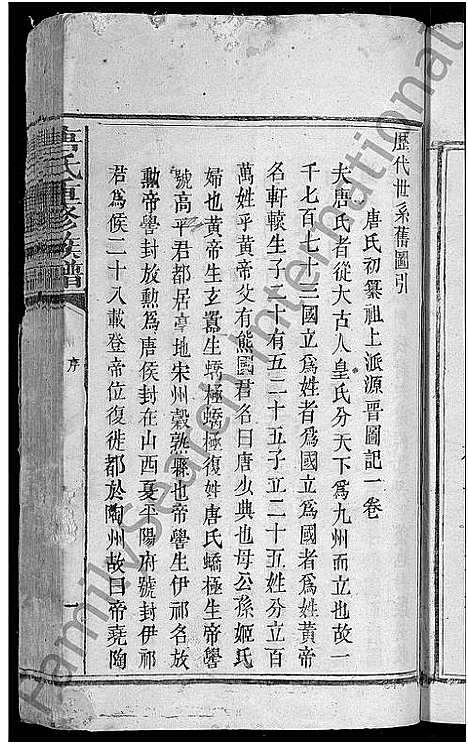 歷代世系舊圖引
唐氏初纂祖上派源晋圖記一卷
夫唐氏者從大古人皇氏分天下爲九州而立也故一
千七百七十三國立爲姓者爲國立爲國者爲姓黃帝
名軒轅生子二十有五二十五子立二十五姓分立百
萬姓乎黃帝父有熊國君名曰唐少典也母公孫姬氏
婦也黃帝生玄囂生蟜極蟜極復姓唐氏蟜極生帝嚳
號高平君都居亭地宋州穀熟縣也帝嚳生伊祁名放
勳帝嚳封放勳爲唐侯封在山西夏平陽府號封伊祁
君爲侯二十入載登帝位復徙都於陶州故曰帝堯陶
唐氏重修族譜
序
一
FamilySearch International